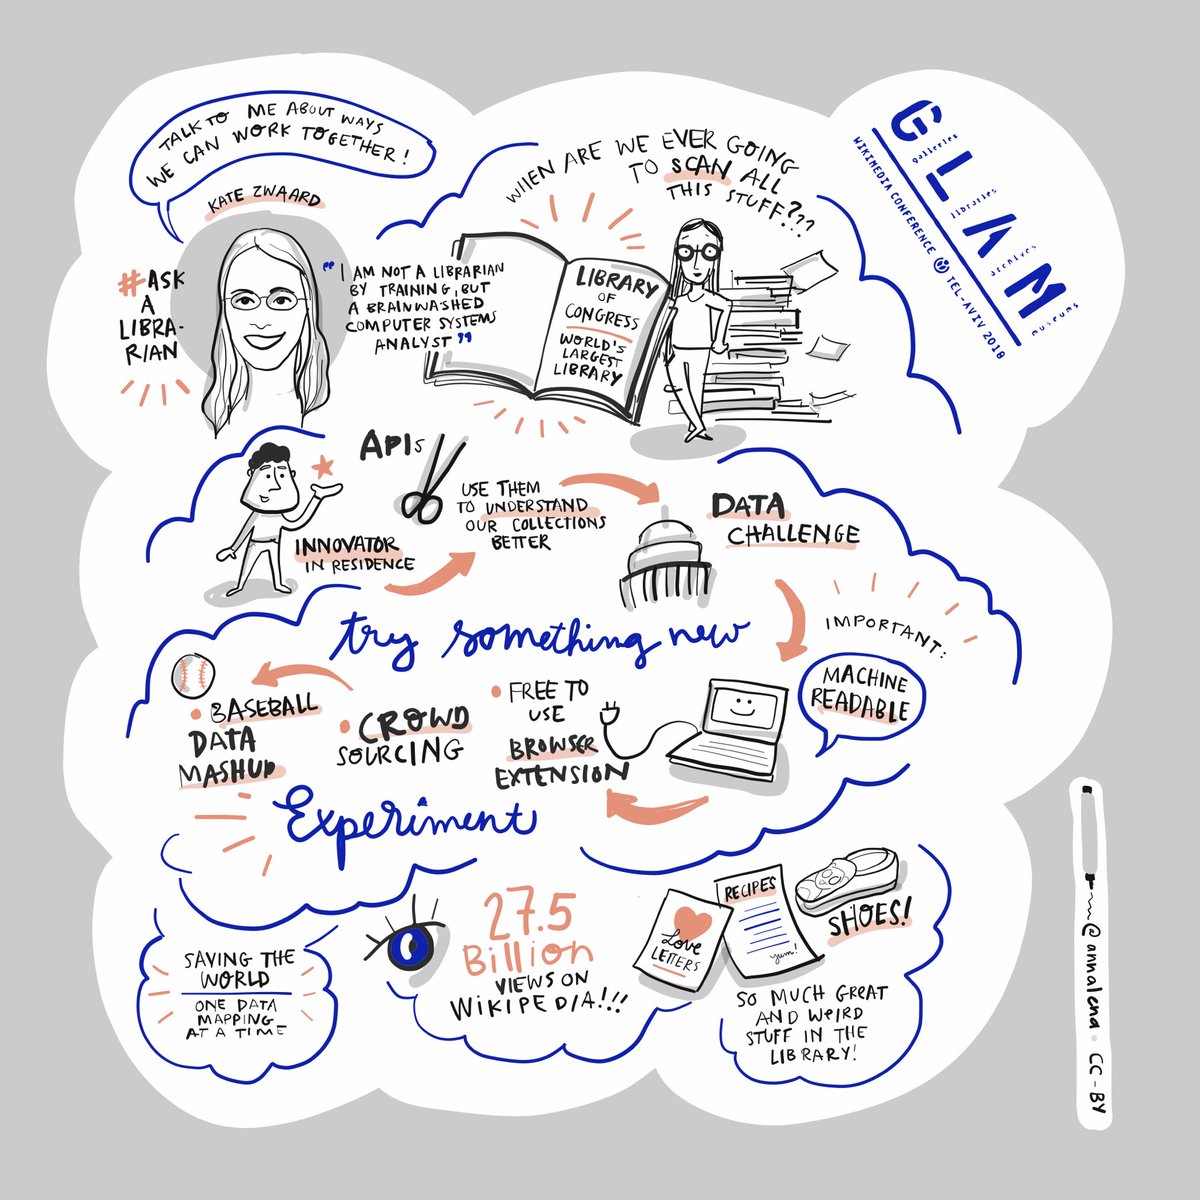 TALK TO ME ABOUT WAYS
WE CAN WORK TOGETHER!
KATE ZWAARD
#ASK
A
LIBRA-
RIAN
"I AM NOT A LIBRARIAN
BY TRAINING, BUT
A BRAINWASHED
COMPUTER SYSTEMS
ANALYST"
WHEN ARE WE EVER GOING
TO SCAN ALL
THIS STUFF???
LIBRARY
OF
CONGRESS
WORLD'S
LARGEST
LIBRARY
GLAM
galleries
libraries
archives
museums
WIKIMEDIA CONFERENCE TEL-AVIV 2018
APIs
INNOVATOR
IN RESIDENCE
USE THEM
TO UNDERSTAND
OUR COLLECTIONS
BETTER
DATA
CHALLENGE
try something new
IMPORTANT:
MACHINE
READABLE
• BASEBALL
DATA
MASHUP
• CROWD
SOURCING
• FREE TO
USE
BROWSER
EXTENSION
Experiment
SAVING THE
WORLD
ONE DATA
MAPPING
AT A TIME
27.5
Billion
VIEWS ON
WIKIPEDIA!!!
Love
LETTERS
RECIPES
yum!
SHOES!
SO MUCH GREAT
AND WEIRD
STUFF IN THE
LIBRARY!
@annalena • CC-BY